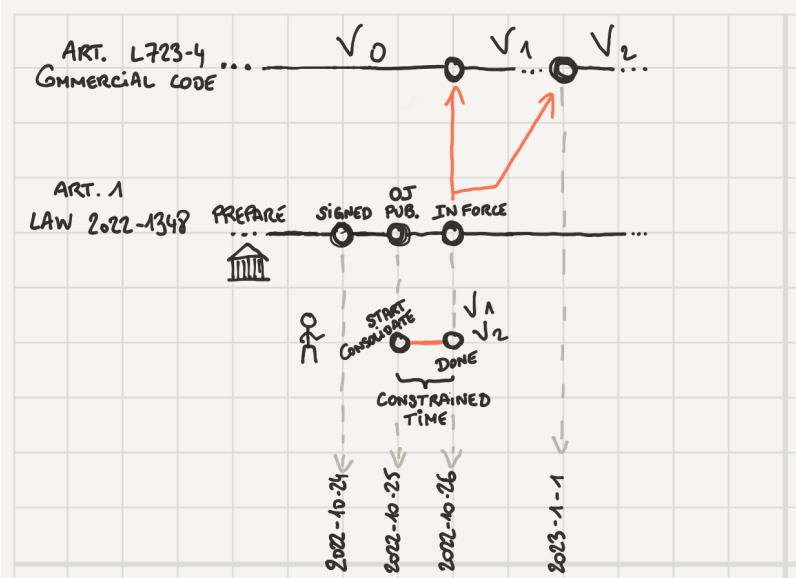 ART. L723-4
COMMERCIAL CODE
V0
V1
V2
ART. 1
LAW 2022-1348
PREPARE
SIGNED
OJ
PUB.
IN FORCE
START
CONSOLIDATE
V1
V2
DONE
CONSTRAINED
TIME
2022-10-24
2022-10-25
2022-10-26
2023-1-1